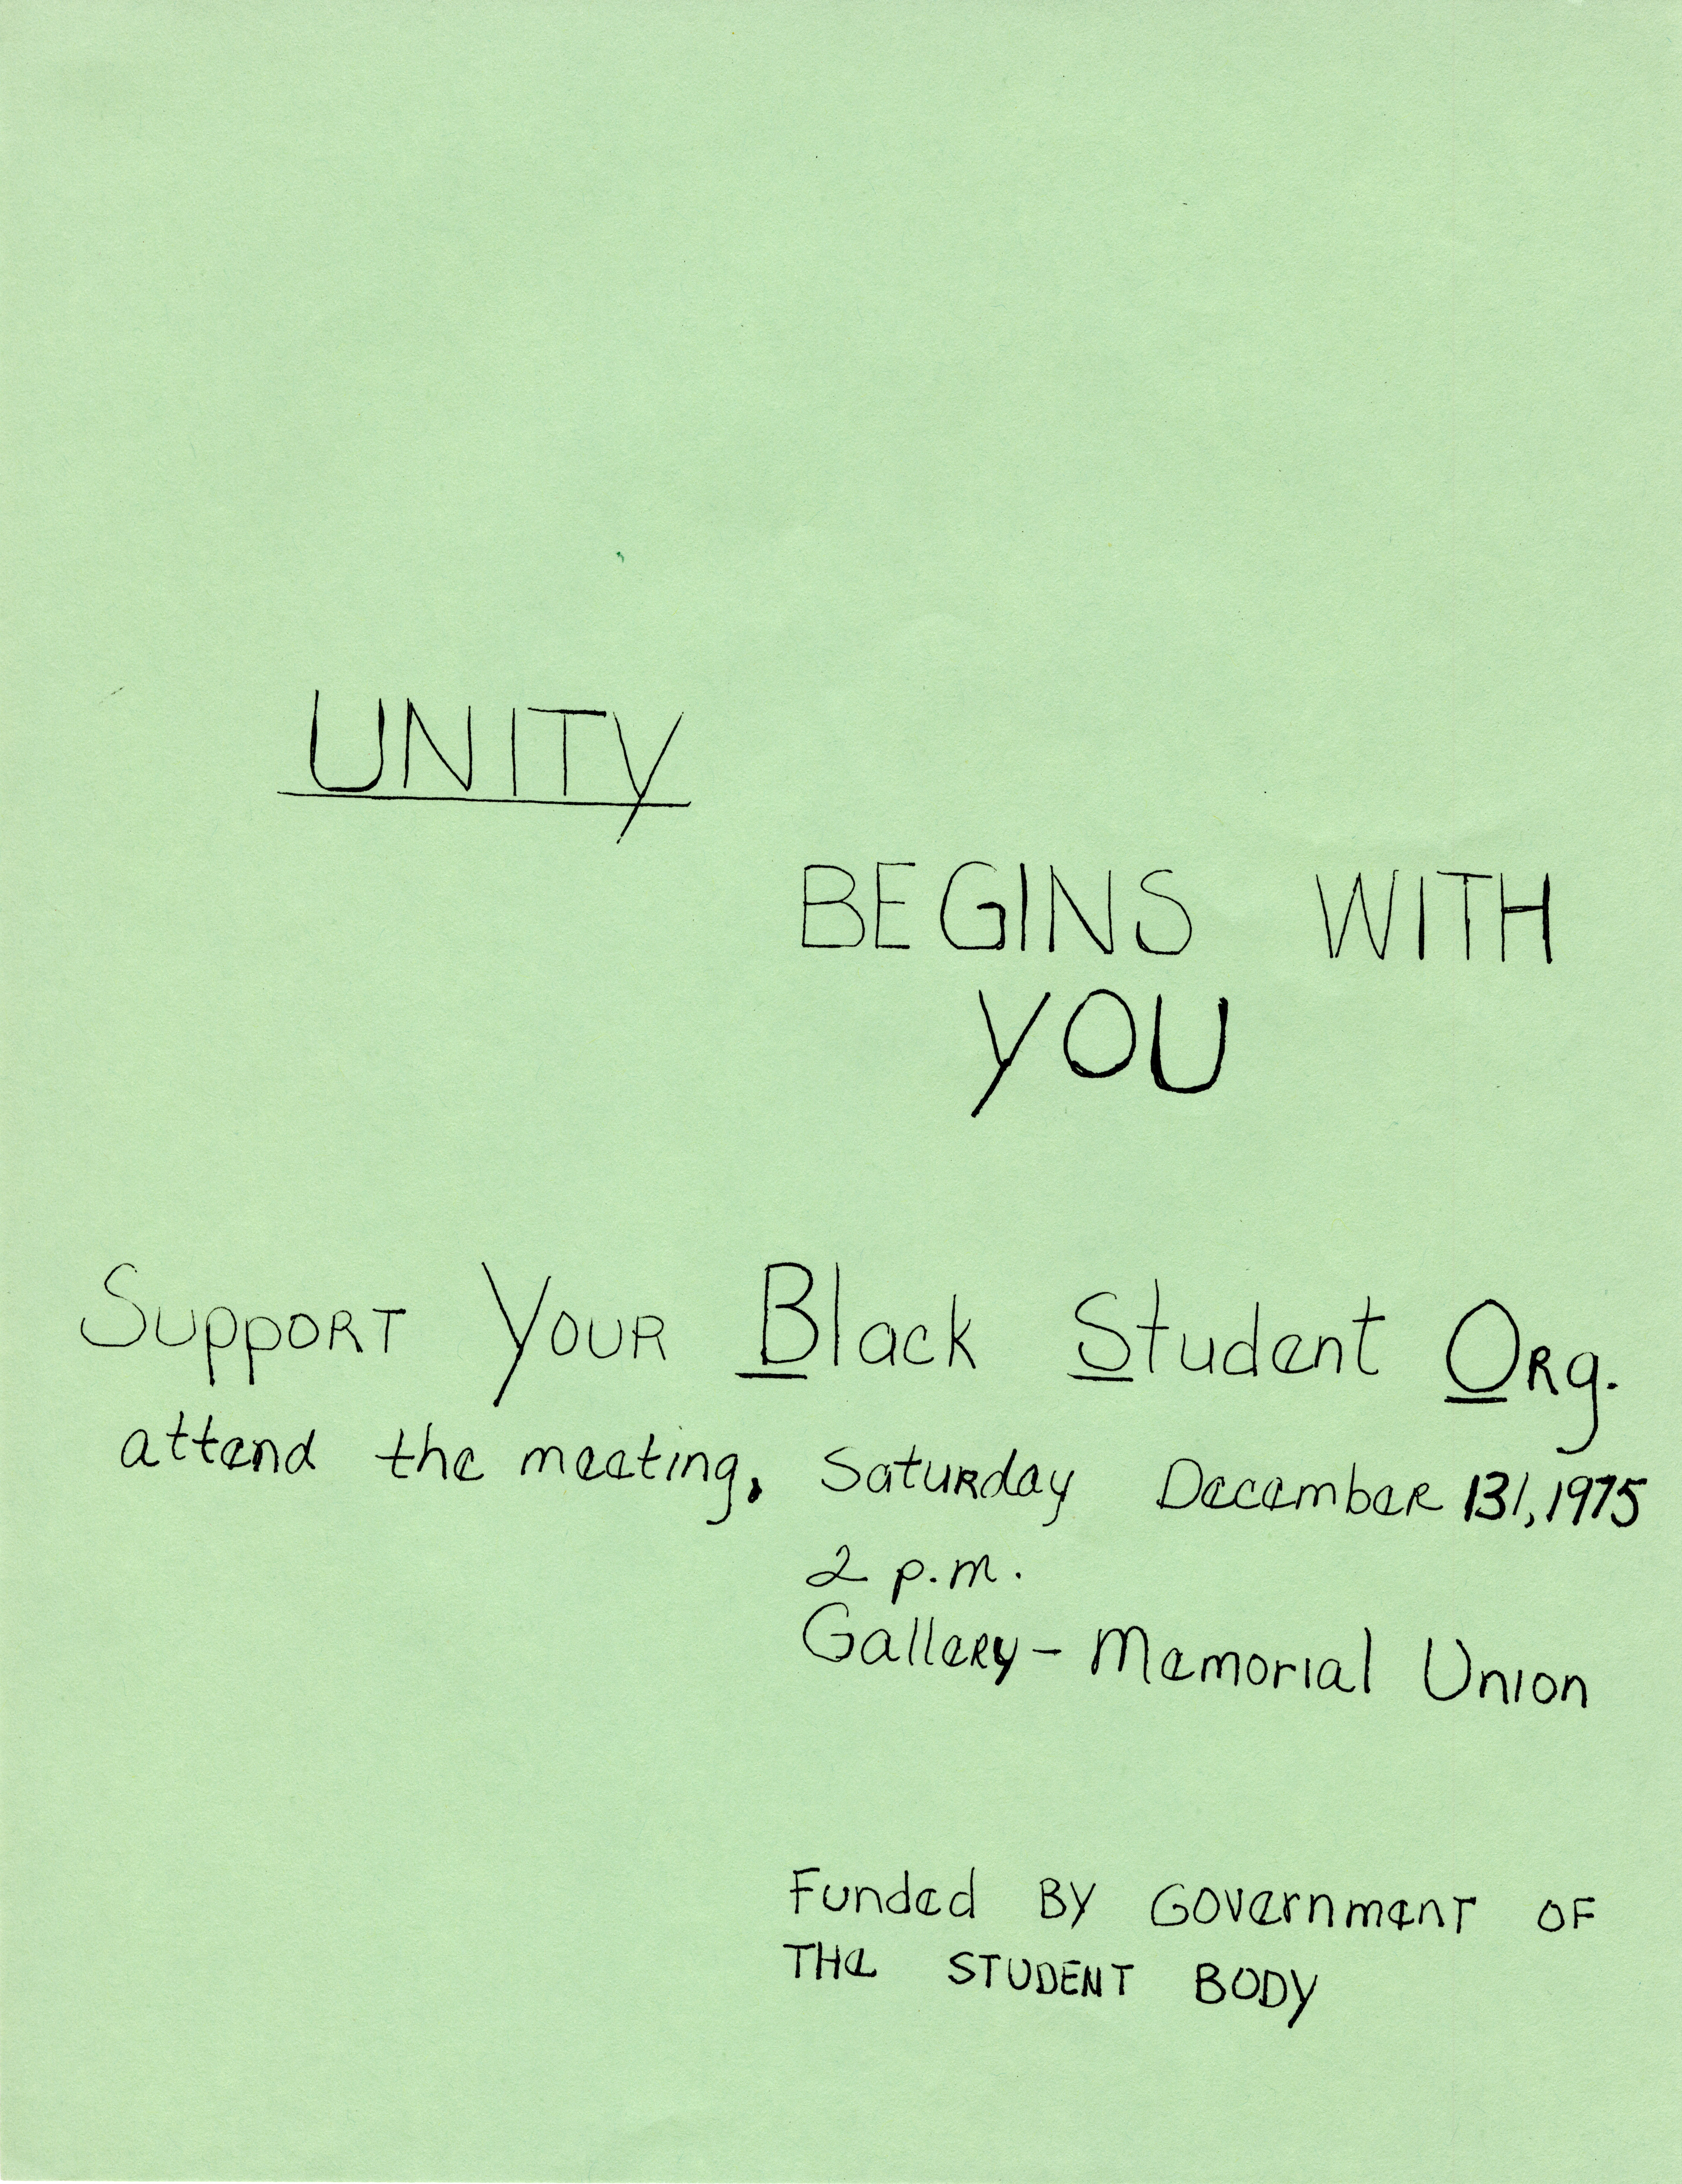 UNITY
BEGINS WITH
YOU
Support Your Black Student Org.
attend the meeting, Saturday December 13, 1975
2 p.m.
Gallery - Memorial Union
Funded By Government OF
THe STUDENT BODY